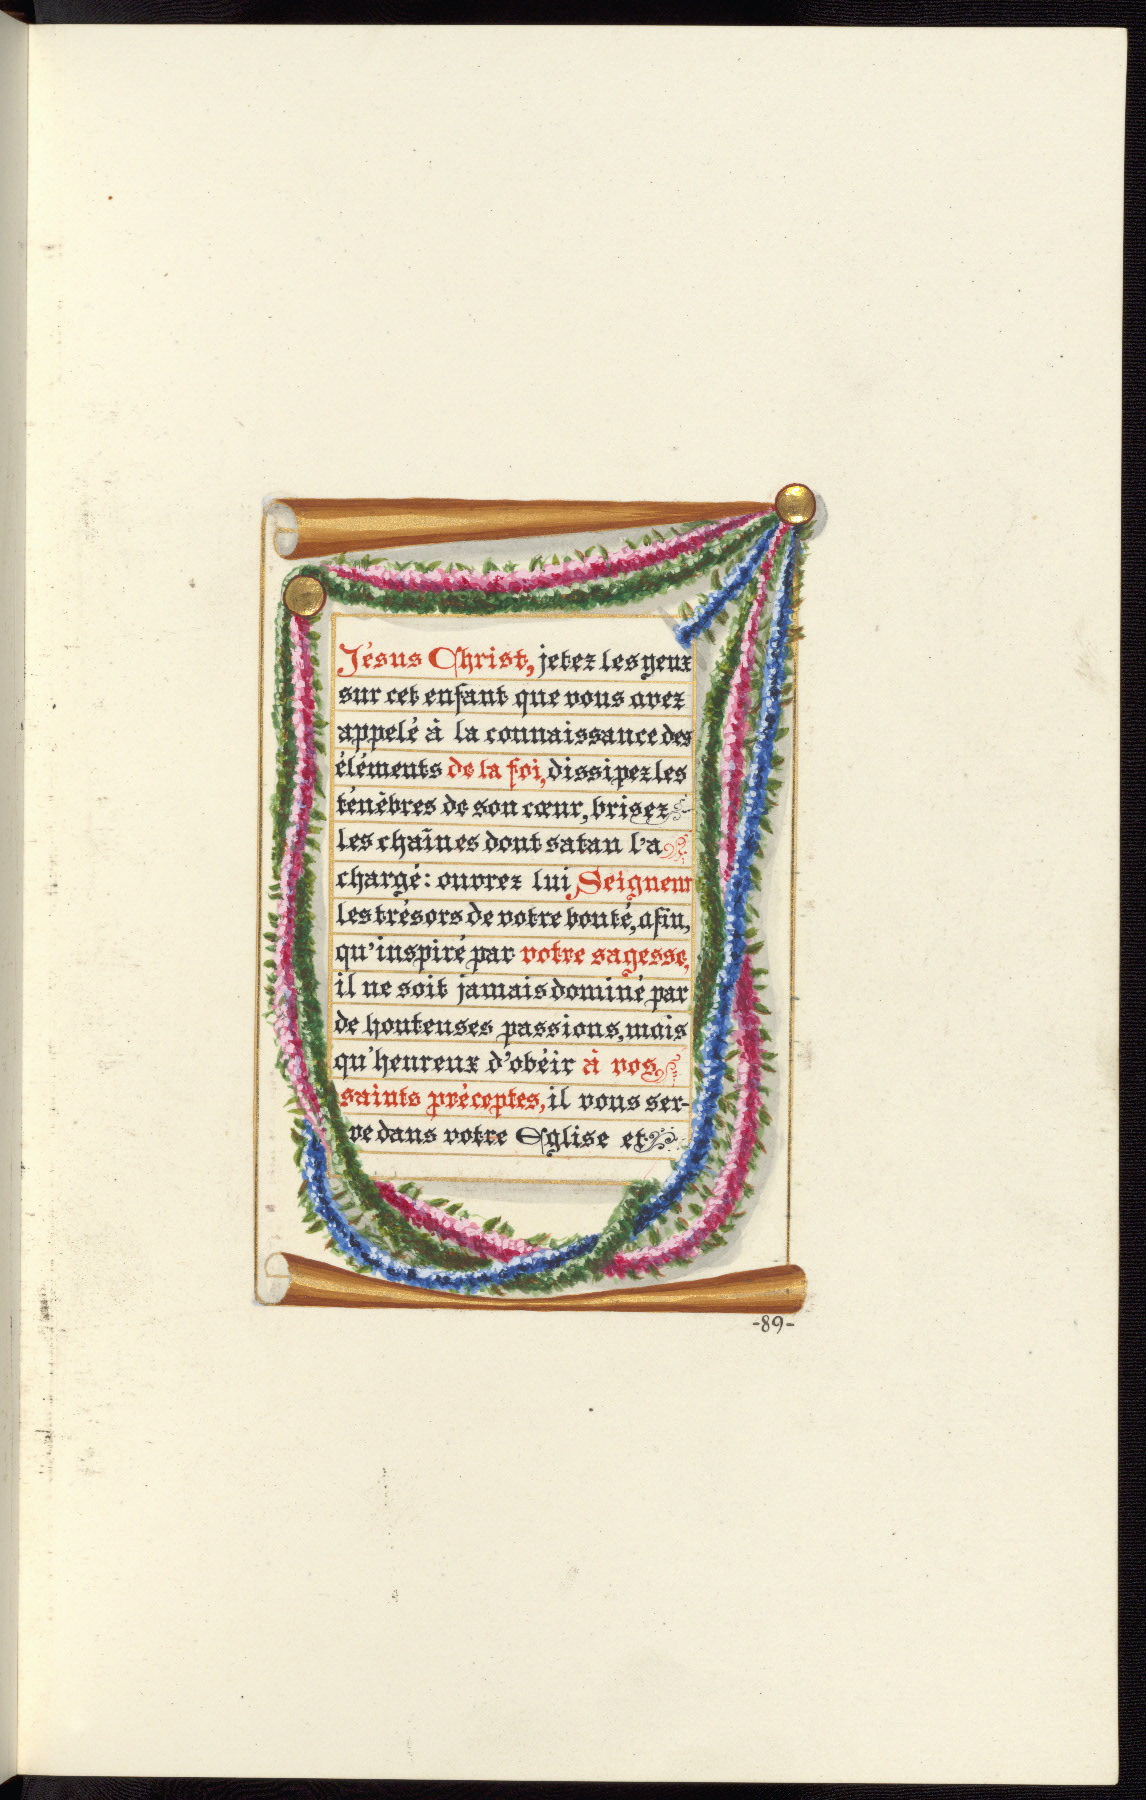 Jésus Christ, jetez les yeux
sur cet enfant que vous avez
appelé à la connaissance des
éléments de la foi, dissipez les
ténèbres de son cœur, brisez
les chaînes dont satan l'a
chargé: ouvrez lui, Seigneur
les trésors de votre bonté, afin,
qu'inspiré par votre sagesse,
il ne soit jamais dominé par
de honteuses passions, mais
qu'heureux d'obéir à vos
saints préceptes, il vous ser-
ve dans votre Eglise et
-89-